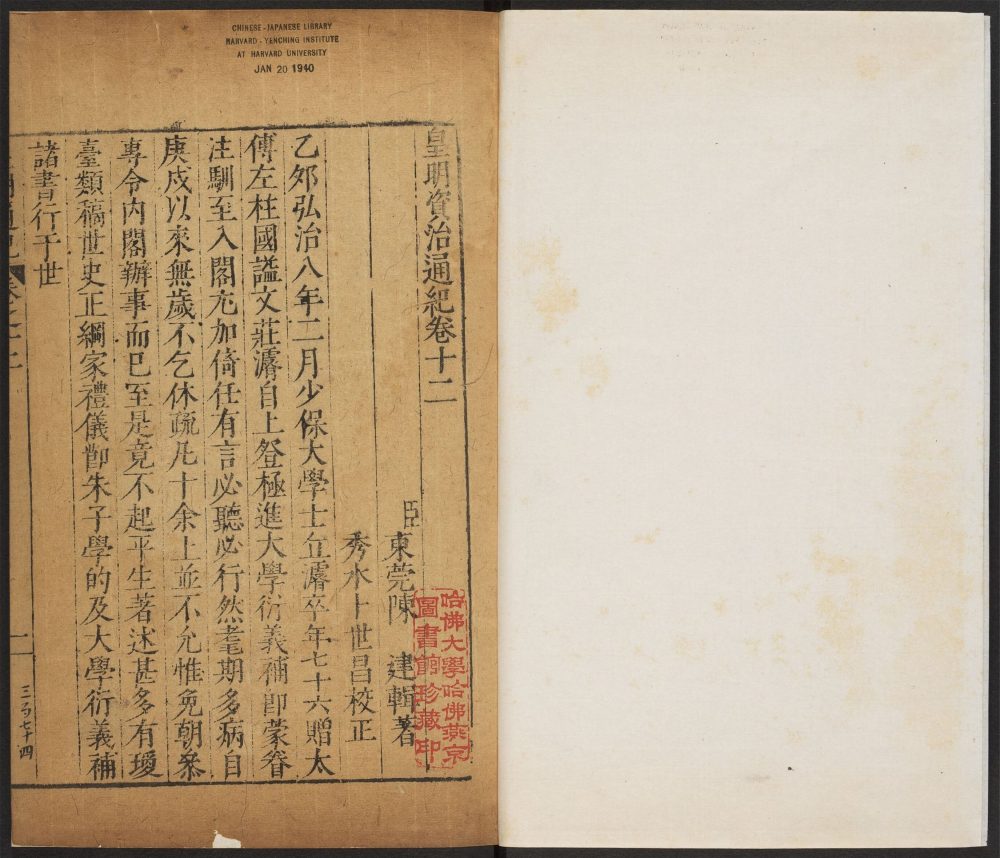 CHINESE-JAPANESE LIBRARY
HARVARD-YENCHING INSTITUTE
AT HARVARD UNIVERSITY
JAN 20 1940
皇明資治通紀卷十二
臣東莞陳 建輯著
秀水卜世昌校正
哈佛大學哈佛燕京
圖書館珍藏印
乙夘弘治八年二月少保大學士丘濬卒年七十六贈太
傅左柱國謚文莊濬自上登極進大學衍義補即蒙眷
注馴至入閣充加倚任有言必聽必行然耄期多病自
庚戌以來無歲不乞休疏凡十余上並不允惟免朝叅
專令内閣辦事而已至是竟不起平生著述甚多有瓊
臺類稿世史正綱家禮儀節朱子學的及大學衍義補
諸書行于世
卷之十二
一
三百七十四